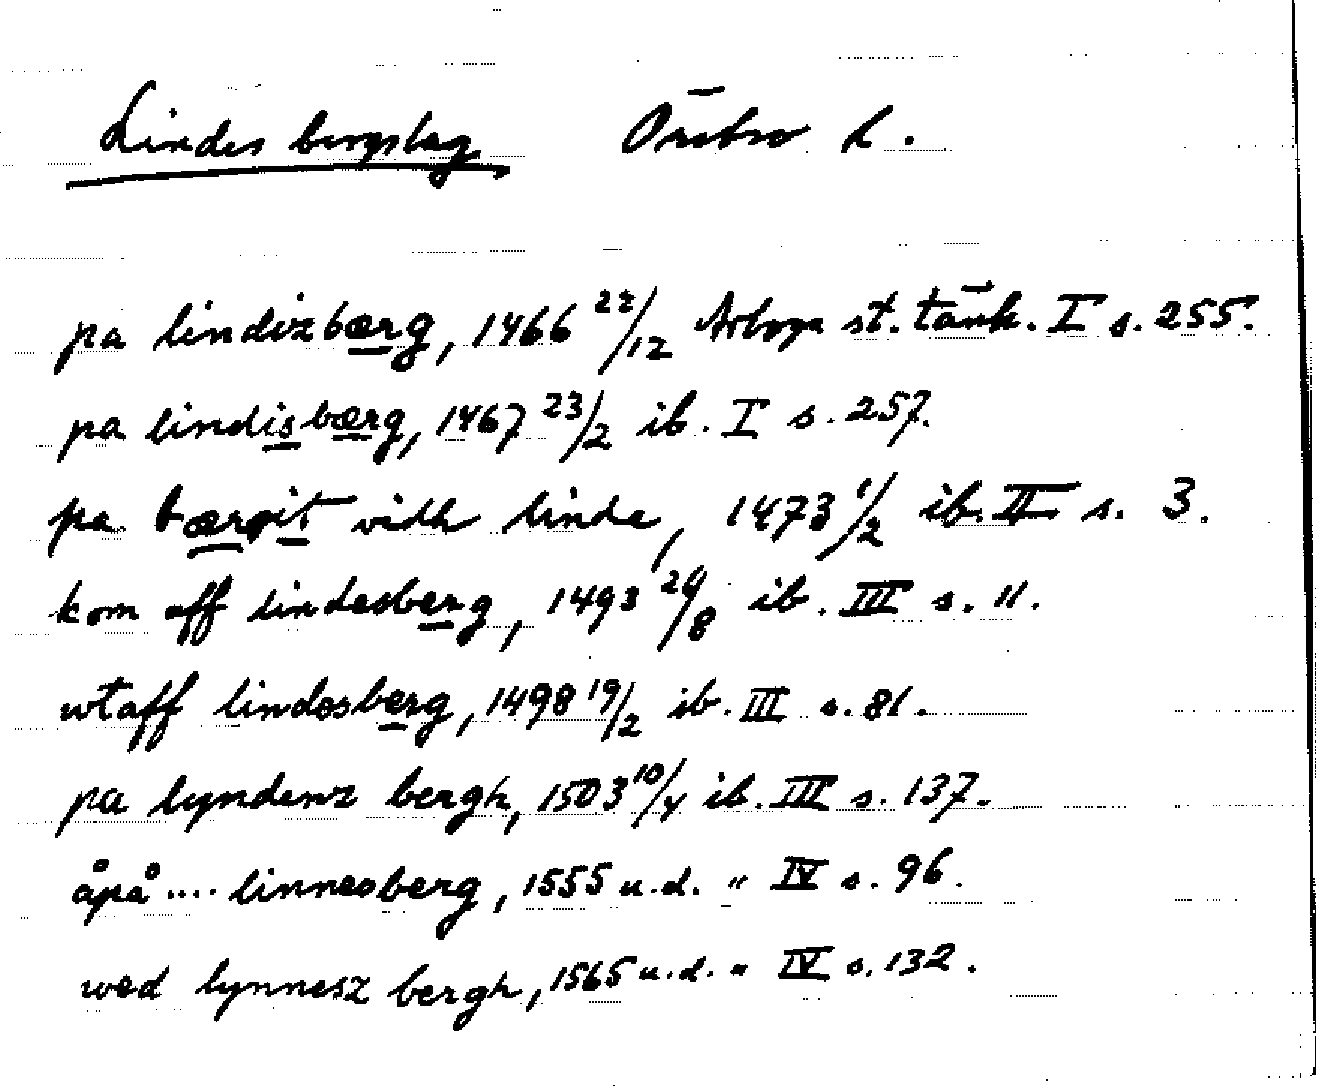 Lindes bergslag Örebro l.
pa lindizbærg, 1466 22/12 Arboga st. tänk. I s. 255.
pa lindisbærg, 1467 23/2 ib. I s. 257.
pa bærgit vidh linde, 1473 1/2 ib. II s. 3.
kom aff lindesberg, 1493 24/8 ib. III s. 11.
wtaff lindesberg, 1498 19/2 ib. III s. 81.
pa lyndenz bergh, 1503 10/4 ib. III s. 137.
åpå .... linnesberg, 1555 u.d. " IV s. 96.
wed lynnesz bergh, 1565 u.d. " IV s. 132.